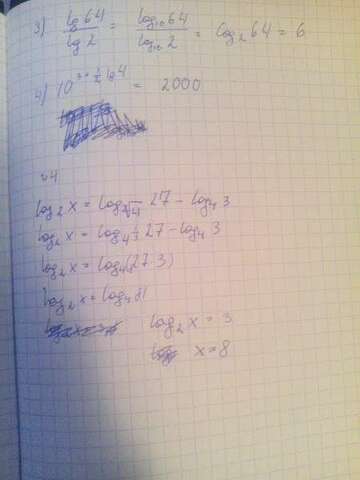 3) lg 64 / lg 2 = log₁₀ 64 / log₁₀ 2 = log₂ 64 = 6
4) 10^(3+½ lg 4) = 2000
№4
log₂ x = log_∛4 27 - log₄ 3
log₂ x = log_4^⅓ 27 - log₄ 3
log₂ x = log₄ (27·3)
log₂ x = log₄ 81
log₂ x = 3
x = 8